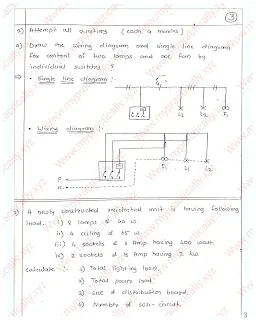 3
2) Attempt all questions (each 4 marks)
a) Draw the wiring diagram and single line diagram
for control of two lamps and one fan by
individual switches ?
→ • Single line diagram :-
L1 L2 F1
• Wiring diagram :-
P
N
F1 L1 L2
b) A newly constructed residential unit is having following
load. i) 8 lamps of 40 W.
ii) 4 ceiling of 65 W.
iii) 4 sockets of 5 Amp having 100 watt.
iv) 2 sockets of 15 Amp having 2 kW
calculate :- a) Total lighting load.
b) Total power load.
c) Size of distribution board.
d) Number of sub-circuit.
3